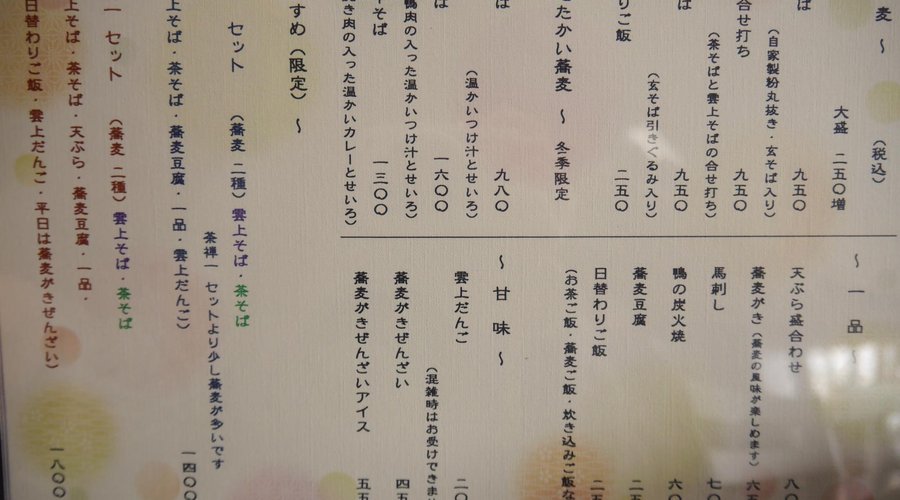 麦 〜
(税込)
大盛 二五〇増
ば
(自家製粉丸抜き・玄そば入り)
九五〇
合せ打ち
(茶そばと雲上そばの合せ打ち)
九五〇
ば
九五〇
(玄そば引きぐるみ入り)
りご飯
二五〇
たかい蕎麦 〜 冬季限定
ば
(温かいつけ汁とせいろ)
九八〇
ば
鴨肉の入った温かいつけ汁とせいろ)
一六〇〇
そば
き肉の入った温かいカレーとせいろ)
一三〇〇
〜 一品 〜
天ぷら盛合わせ 八
蕎麦がき (蕎麦の風味が楽しめます)
馬刺し 七〇
鴨の炭火焼
蕎麦豆腐
日替わりご飯
(お茶ご飯・蕎麦ご飯・炊き込みご飯な
〜 甘味 〜
雲上だんご 二〇
(混雑時はお受けできま
蕎麦がきぜんざい 四五
蕎麦がきぜんざいアイス 五五
すめ (限定) 〜
セット (蕎麦 二種) 雲上そば・茶そば
茶禅一 セットより少し蕎麦が多いです
上そば・茶そば・蕎麦豆腐・一品・雲上だんご)
一四〇〇
一 セット (蕎麦 二種) 雲上そば・茶そば
上そば・茶そば・天ぷら・蕎麦豆腐・一品・
日替わりご飯・雲上だんご・平日は蕎麦がきぜんざい)
一八〇〇